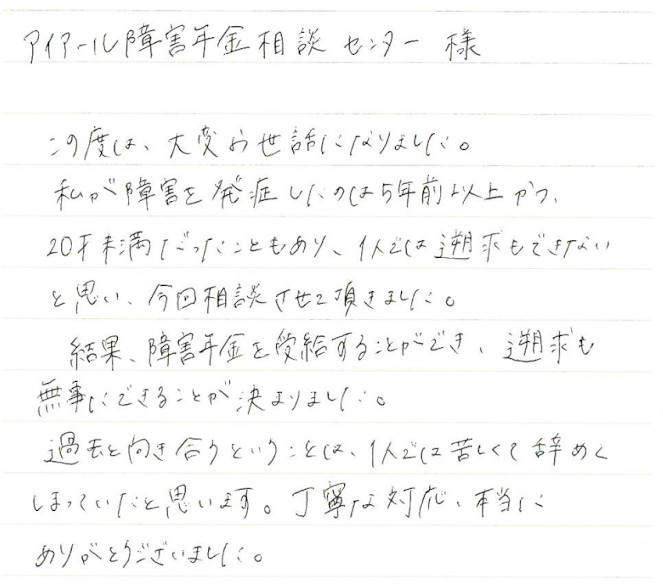 アイアール障害年金相談センター 様
この度は、大変お世話になりました。
私が障害を発症したのは5年前以上かつ、
20才未満だったこともあり、1人では遡求もできない
と思い、今回相談させて頂きました。
結果、障害年金を受給することができ、遡求も
無事にできることが決まりました。
過去と向き合うということは、1人では苦しくて辞めて
しまっていたと思います。丁寧な対応、本当に
ありがとうございました。